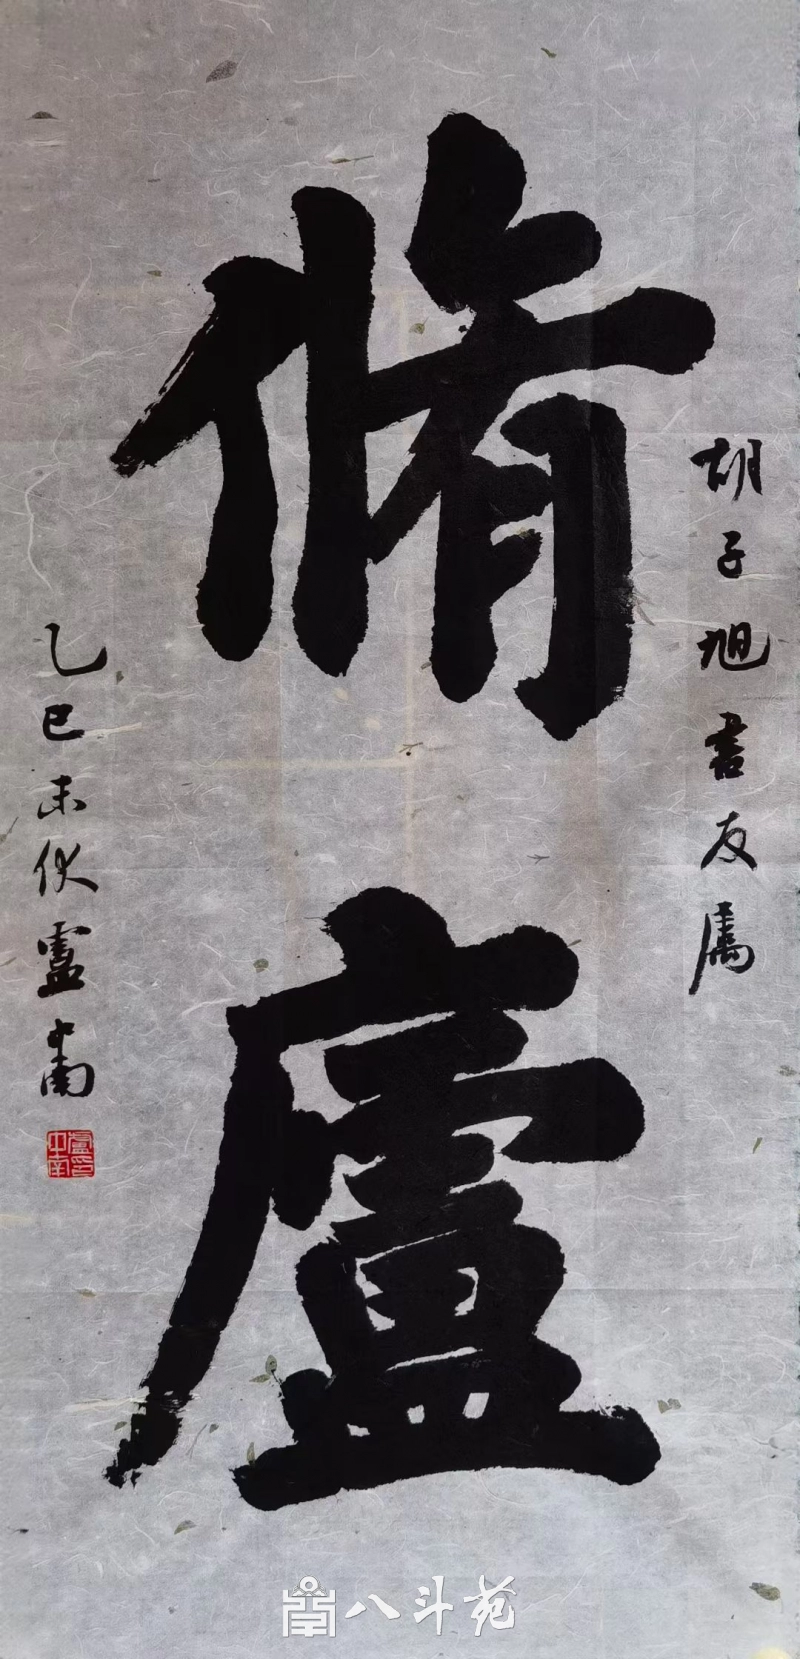 胡子旭書友属
脩廬
乙巳末伏盧中南
盧印
中南
八斗苑